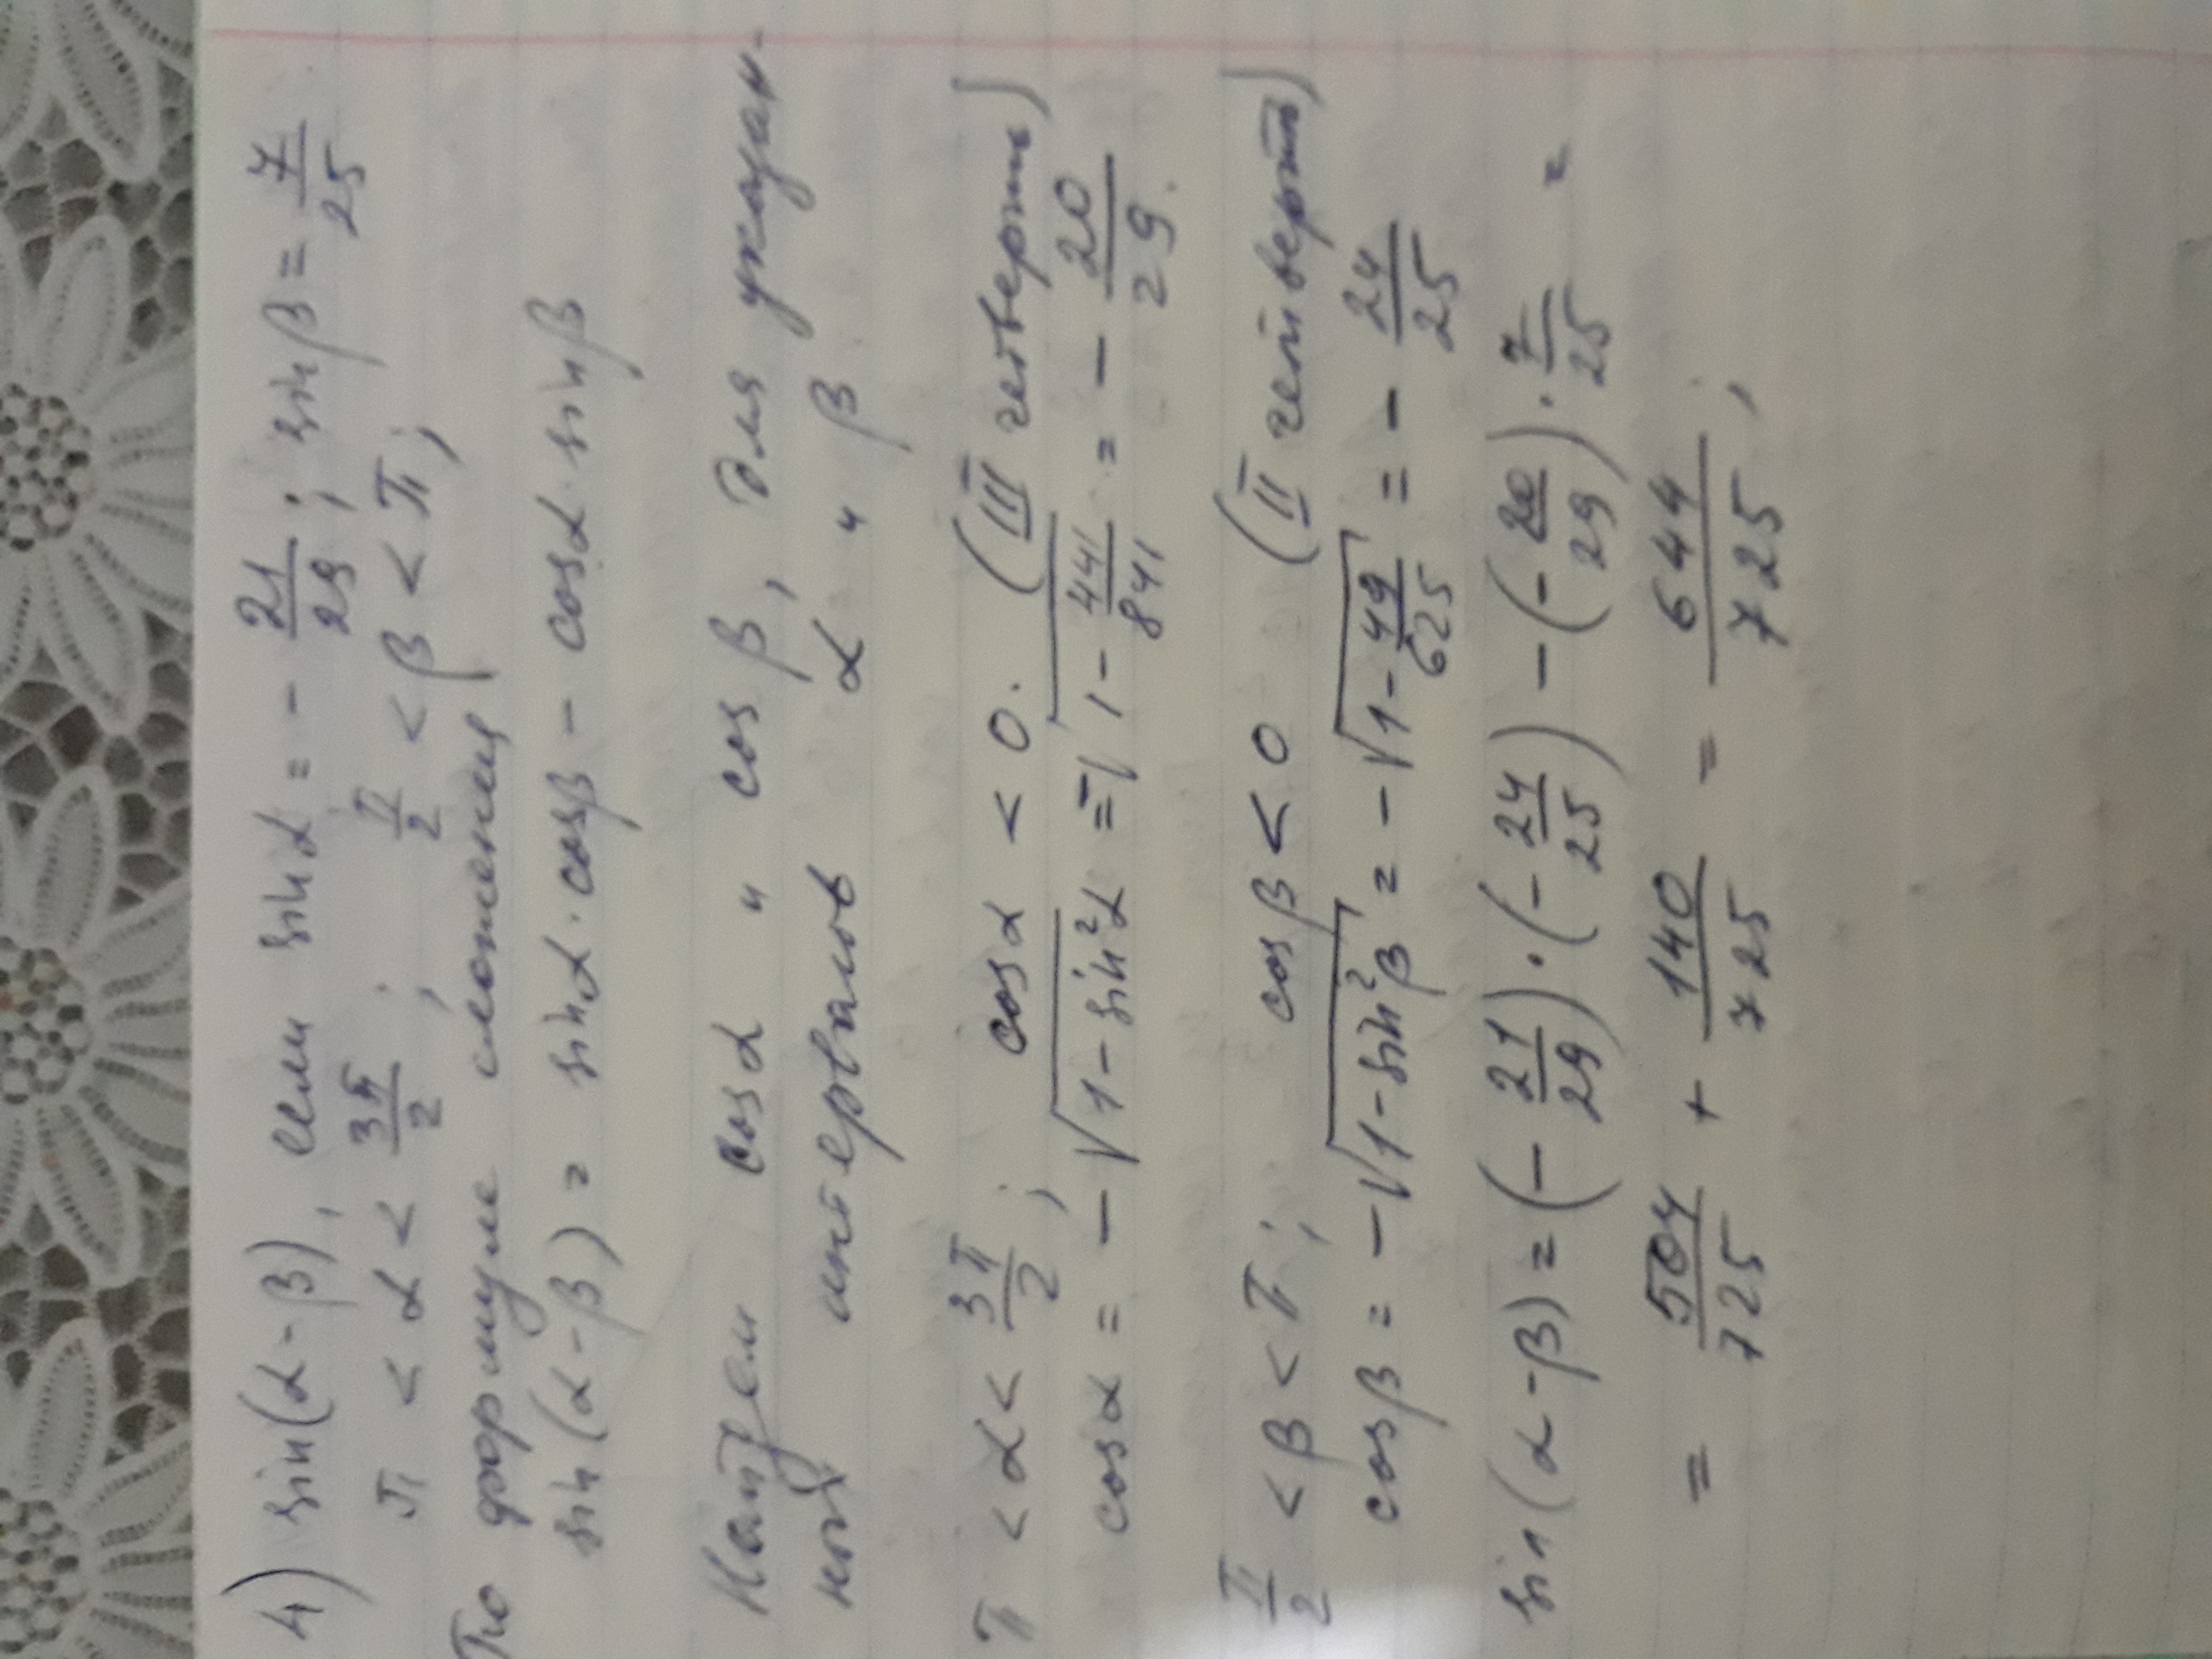 4) sin(α-β), если sinα = - 21/29; sinβ = 7/25
π < α < 3π/2; π/2 < β < π;
По формуле сложения
sin(α-β) = sinα·cosβ - cosα·sinβ
Найдем cosα и cosβ, для указан-
ной интервалов α и β
π < α < 3π/2; cosα < 0. (III четверть)
cosα = -√(1-sin²α) = -√(1 - 441/841) = - 20/29.
π/2 < β < π; cosβ < 0 (II четверть)
cosβ = -√(1-sin²β) = -√(1 - 49/625) = - 24/25
sin(α-β) = (- 21/29)·(- 24/25) - (- 20/29)·7/25 =
= 504/725 + 140/725 = 644/725;